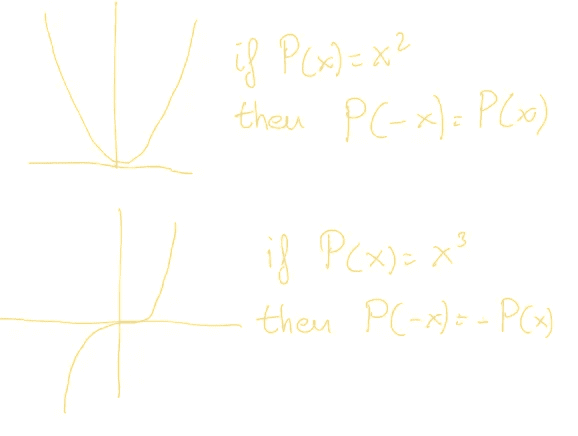 if P(x)=x²
then P(-x)=P(x)
if P(x)=x³
then P(-x)=-P(x)